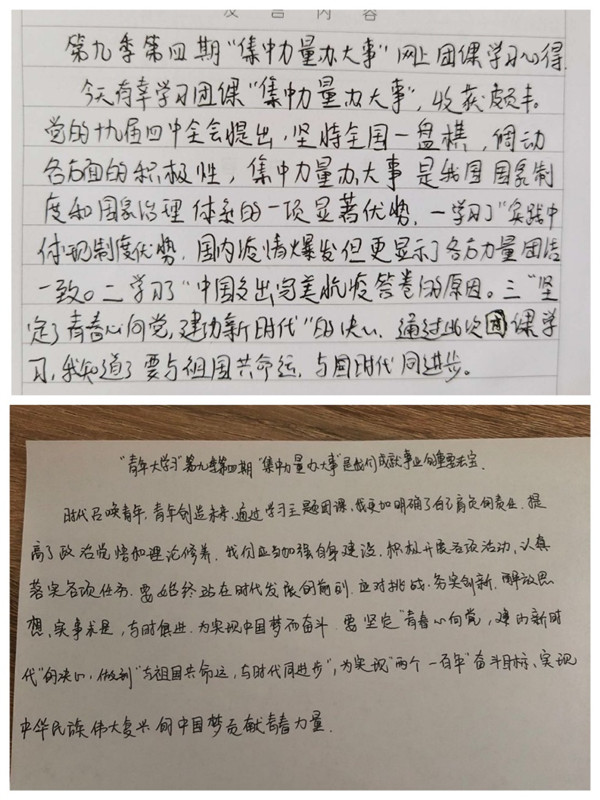 发言内容
第九季第四期“集中力量办大事”网上团课学习心得.
今天有幸学习团课“集中力量办大事”，收获颇丰。
党的十九届四中全会提出，坚持全国一盘棋，调动
各方面的积极性，集中力量办大事是我国国家制
度和国家治理体系的一项显著优势，一学习了“实践中
体现制度优势，国内疫情爆发但更显示了各方力量团结
一致。二学习了“中国交出完美抗疫答卷”的原因。三“坚
定了青春心向党，建功新时代”的决心、通过此次团课学
习，我知道了要与祖国共命运，与国时代同进步。
“青年大学习”第九季第四期“集中力量办大事”是我们成就事业的重要法宝.
时代召唤青年，青年创造未来，通过学习主题团课，我更加明确了自己肩负的责任，提
高了政治觉悟和理论修养，我们应当加强自身建设，积极开展各项活动，认真
落实各项任务，要始终站在时代发展的前列，应对挑战，务实创新，解放思
想、实事求是，与时俱进，为实现中国梦而奋斗，要坚定“青春心向党，建功新时
代”的决心，做到“与祖国共命运，与时代同进步”，为实现“两个一百年”奋斗目标、实现
中华民族伟大复兴的中国梦贡献青春力量.